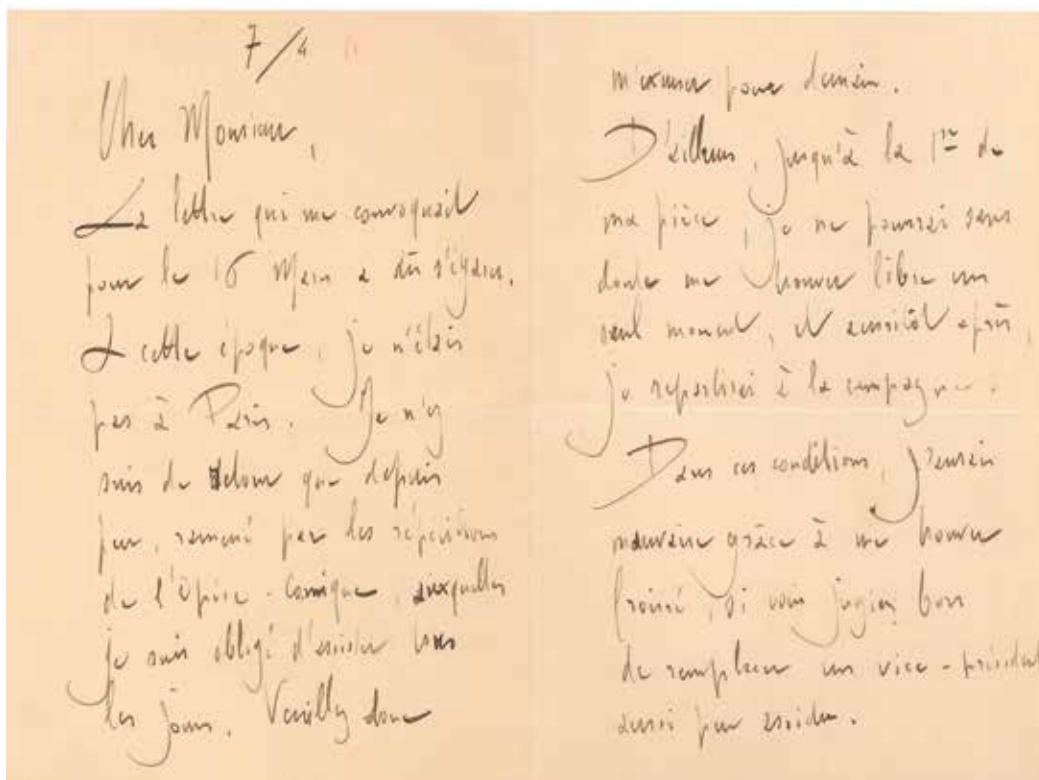 7/4
Cher Monsieur,
La lettre qui me convoquait
pour le 16 Mars a dû s'égarer.
A cette époque, je n'étais
pas à Paris. Je n'y
suis de retour que depuis
peu, ramené par les répétitions
de l'Opéra-Comique, auxquelles
je suis obligé d'assister tous
les jours. Veuillez donc
m'excuser pour demain.
D'ailleurs, jusqu'à la 1re de
ma pièce, je ne pourrai sans
doute me trouver libre un
seul moment, et aussitôt après,
je repartirai à la campagne.
Dans ces conditions, j'aurais
mauvaise grâce à me trouver
froissé, si vous jugiez bon
de remplacer un vice-président
aussi peu assidu.